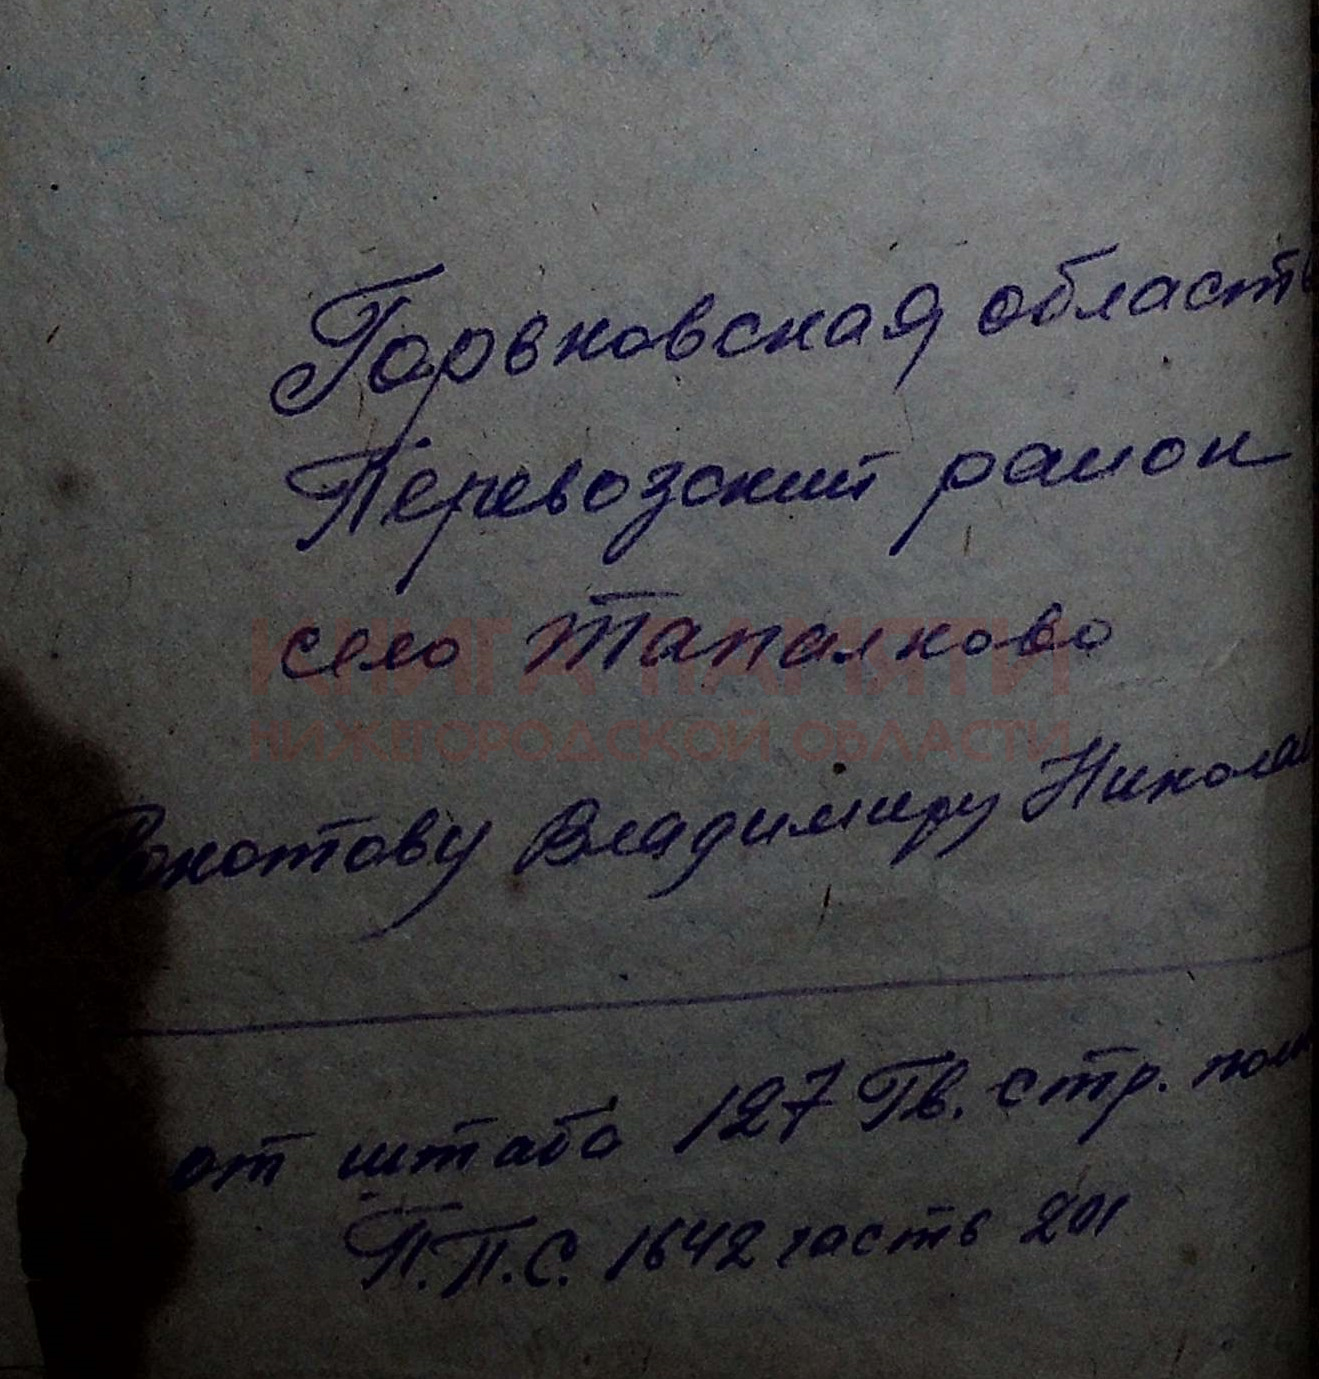 Горьковская область
Перевозский район
село Тапалково
КНИГА ПАМЯТИ
НИЖЕГОРОДСКОЙ ОБЛАСТИ
Рокотову Владимиру Никола
от штаба 127 Гв. стр. полк
П.П.С. 1642 часть 201